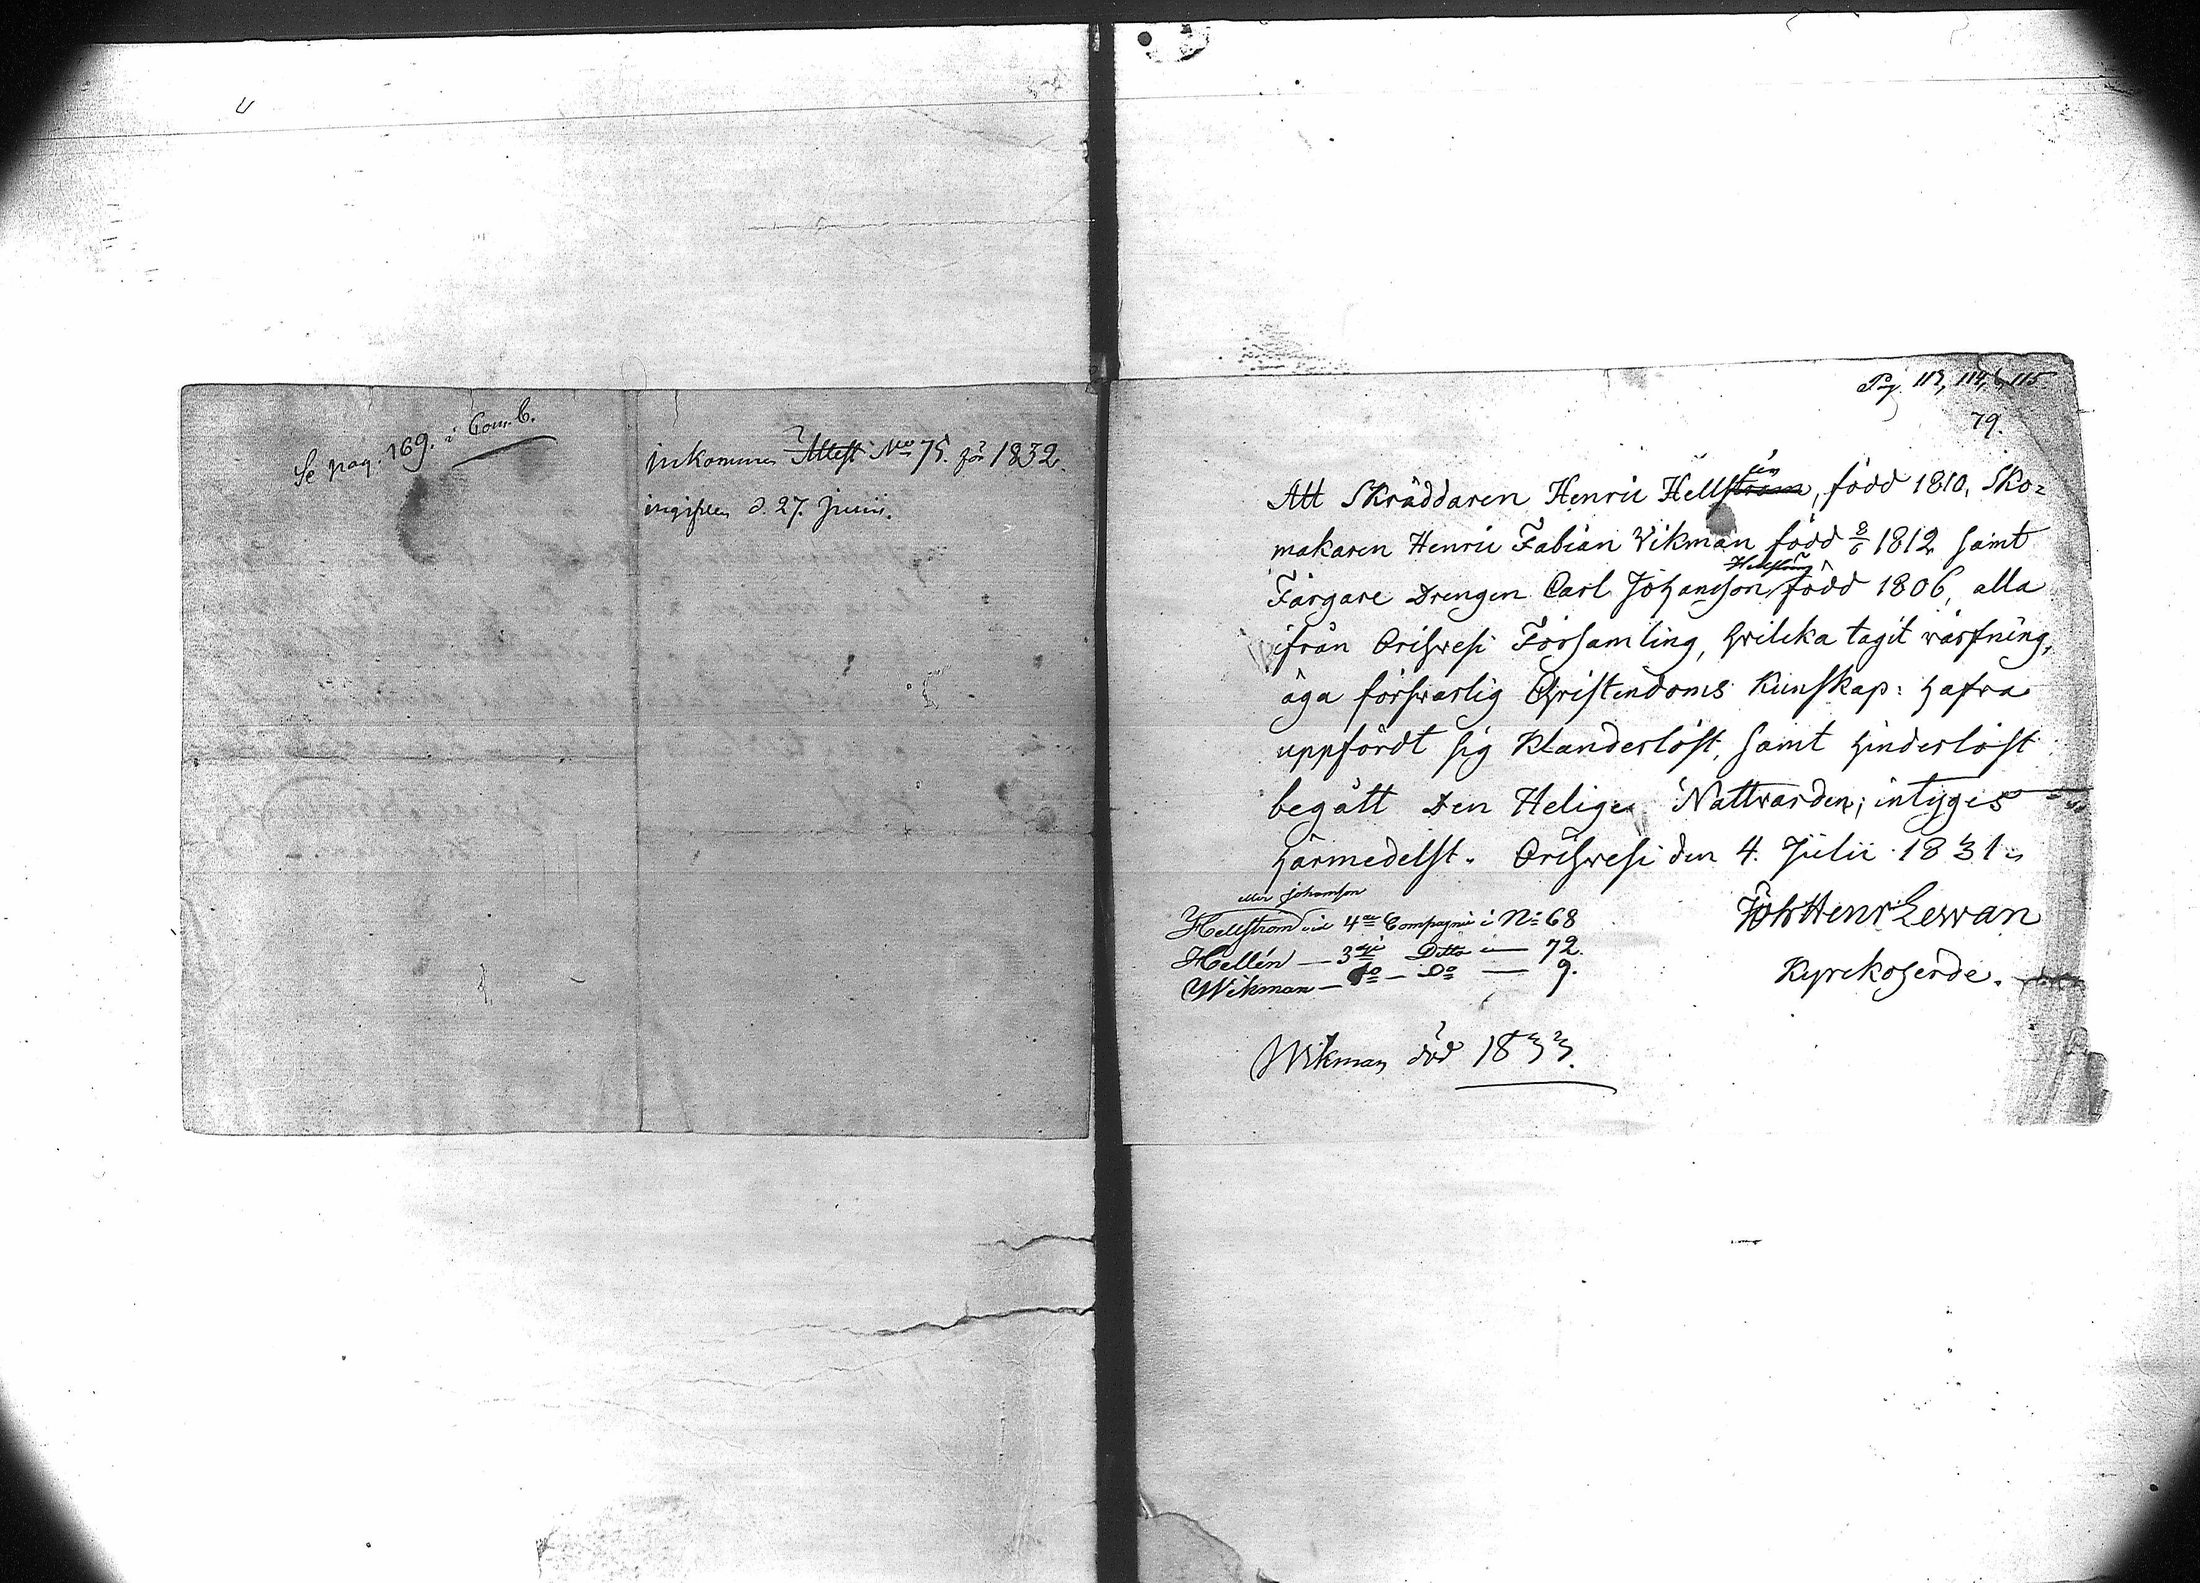 Se pag. 169. i Com.b.
inkommen Attest No 75. för 1832.
ingifven d. 27. Junii.
Pag. 113, 114, & 115
79.
én
Att Skräddaren Henric Hellström, född 1810, Sko=
makaren Henric Fabian Wikman född 2/6 1812 samt
Hellström
Färgare Drengen Carl Johansson, född 1806, alla
ifrån Orihvesi Församling, hvilcka tagit värfning,
äga försvarlig Christendoms Kunskap: hafva
uppfördt sig Klanderlöst, samt hinderlöst
begått Den Heliga Nattvarden; intyges
härmedelst. Orihvesi den 4. Julii 1831.
eller Johansson
Hellström vid 4de Compagnie i No 68
Hellén — 3dje Ditto i — 72.
Wikman — do — Do — 9.
Joh Henr Lewan
Kyrckoherde.
Wikman död 1833.